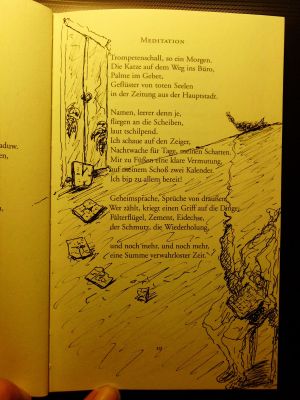 MEDITATION
Trompetenschall, so ein Morgen.
Die Katze auf dem Weg ins Büro,
Palme im Gebet,
Geflüster von toten Seelen
in der Zeitung aus der Hauptstadt.
Namen, leerer denn je,
fliegen an die Scheiben,
laut tschilpend.
Ich schaue auf den Zeiger,
Nachtwache für Tage, meinen Schatten.
Mir zu Füßen eine klare Vermutung,
auf meinem Schoß zwei Kalender.
Ich bin zu allem bereit!
Geheimsprache, Sprüche von draußen.
Wer zählt, kriegt einen Griff auf die Dinge,
Falterflügel, Zement, Eidechse,
der Schmutz, die Wiederholung,
und noch mehr, und noch mehr,
eine Summe verwahrloster Zeit.
19